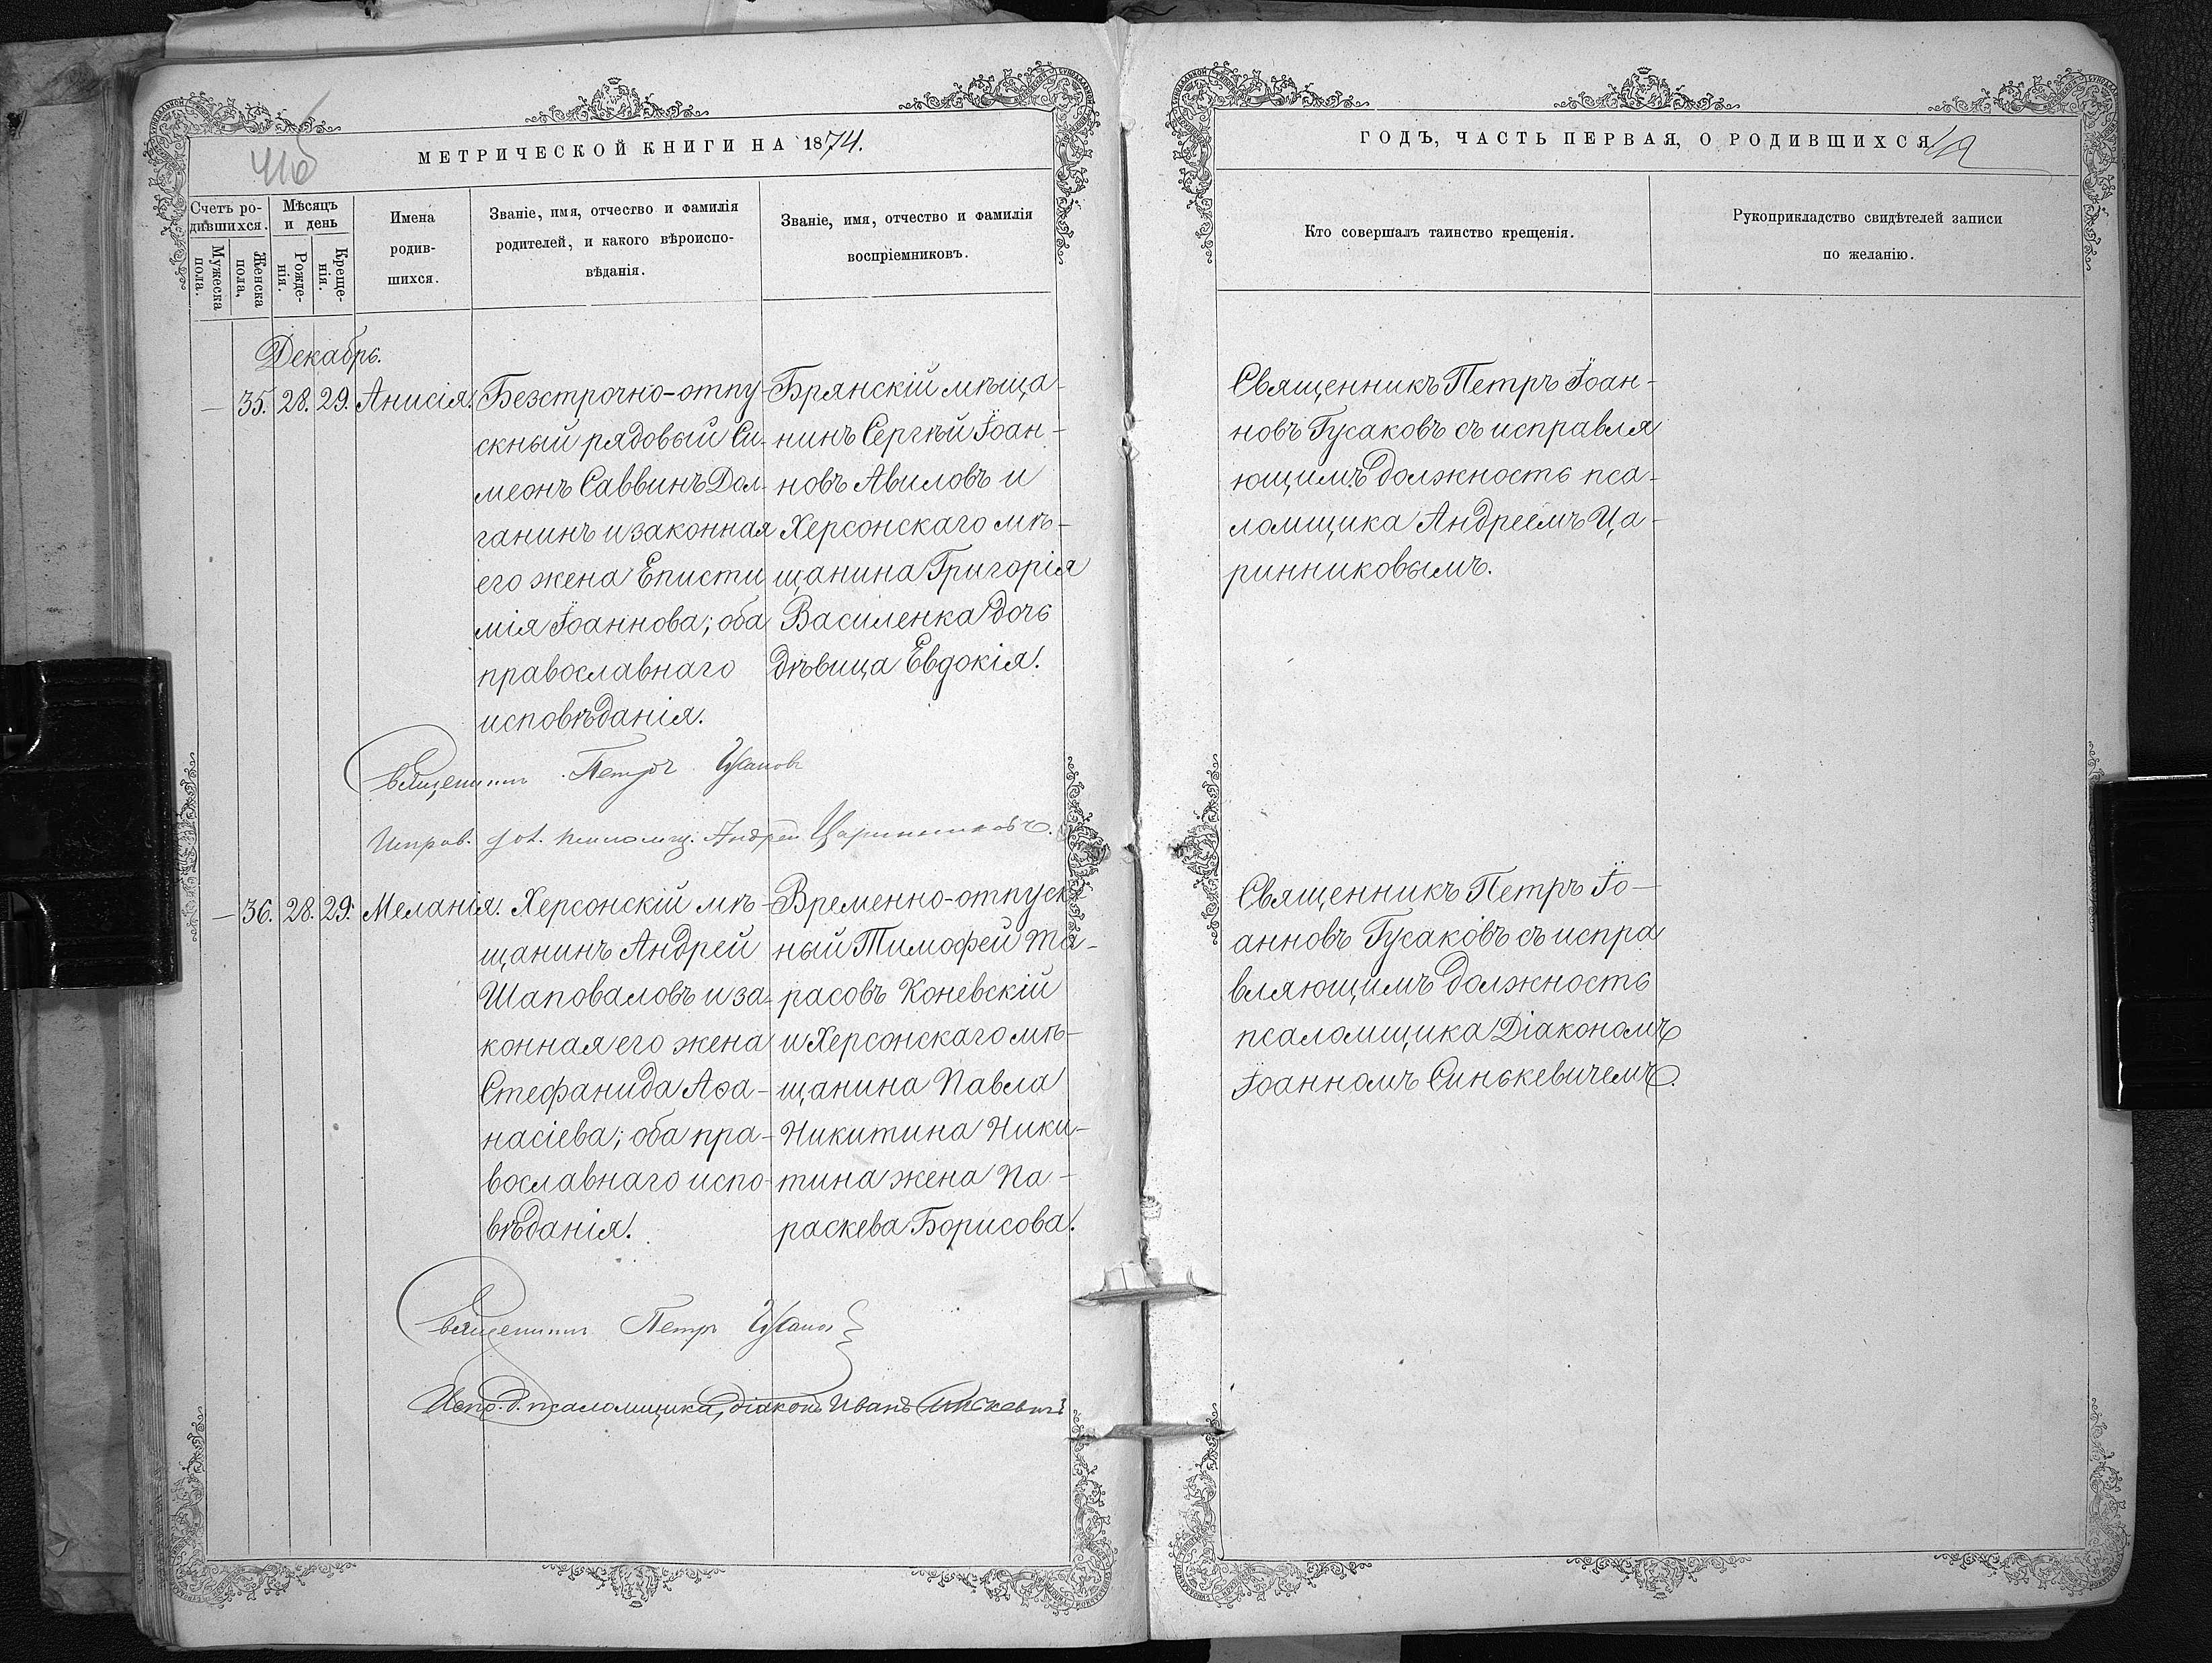 МЕТРИЧЕСКОЙ КНИГИ НА 1874.
Счетъ ро-
дившихся.
Мужеска
пола.
Женска
пола,
Мѣсяцъ
и день
Рожде-
нія.
Креще-
нія.
Имена
родив-
шихся.
Званіе, имя, отчество и фамилія
родителей, и какого вѣроиспо-
вѣданія.
Званіе, имя, отчество и фамилія
воспріемниковъ.
Декабрь.
— 35. 28. 29. Анисія.
Безстрочно-отпу-
скный рядовый Си-
меонъ Саввинъ Дол-
ганинъ и законная
его жена Еписти
мія Іоаннова; оба
православнаго
исповѣданія.
Брянскій мѣща-
нинъ Сергѣй Іоан-
новъ Авиловъ и
Херсонскаго мѣ-
щанина Григорія
Василенка дочь
дѣвица Евдокія.
Священникъ Петръ
Андрей Царинниковъ.
— 36. 28. 29. Меланія.
Херсонскій мѣ-
щанинъ Андрей
Шаповаловъ и за-
конная его жена
Стефанида Аѳа-
насіева; оба пра-
вославнаго испо-
вѣданія.
Временно-отпуск-
ный Тимофей Та-
расовъ Коневскій
и Херсонскаго мѣ-
щанина Павла
Никитина Ники-
тина жена Па-
раскева Борисова.
Священникъ Петръ
Испр. д. псаломщика, діаконъ Иванъ Синькевичъ
ГОДЪ, ЧАСТЬ ПЕРВАЯ, О РОДИВШИХСЯ
Кто совершалъ таинство крещенія.
Рукоприкладство свидѣтелей записи
по желанію.
Священникъ Петръ Іоан-
новъ Гусаковъ съ исправля
ющимъ должность пса-
ломщика Андреемъ Ца-
ринниковымъ.
Священникъ Петръ Іо-
анновъ Гусаковъ съ испра
вляющимъ должность
псаломщика Діакономъ
Іоанномъ Синькевичемъ.